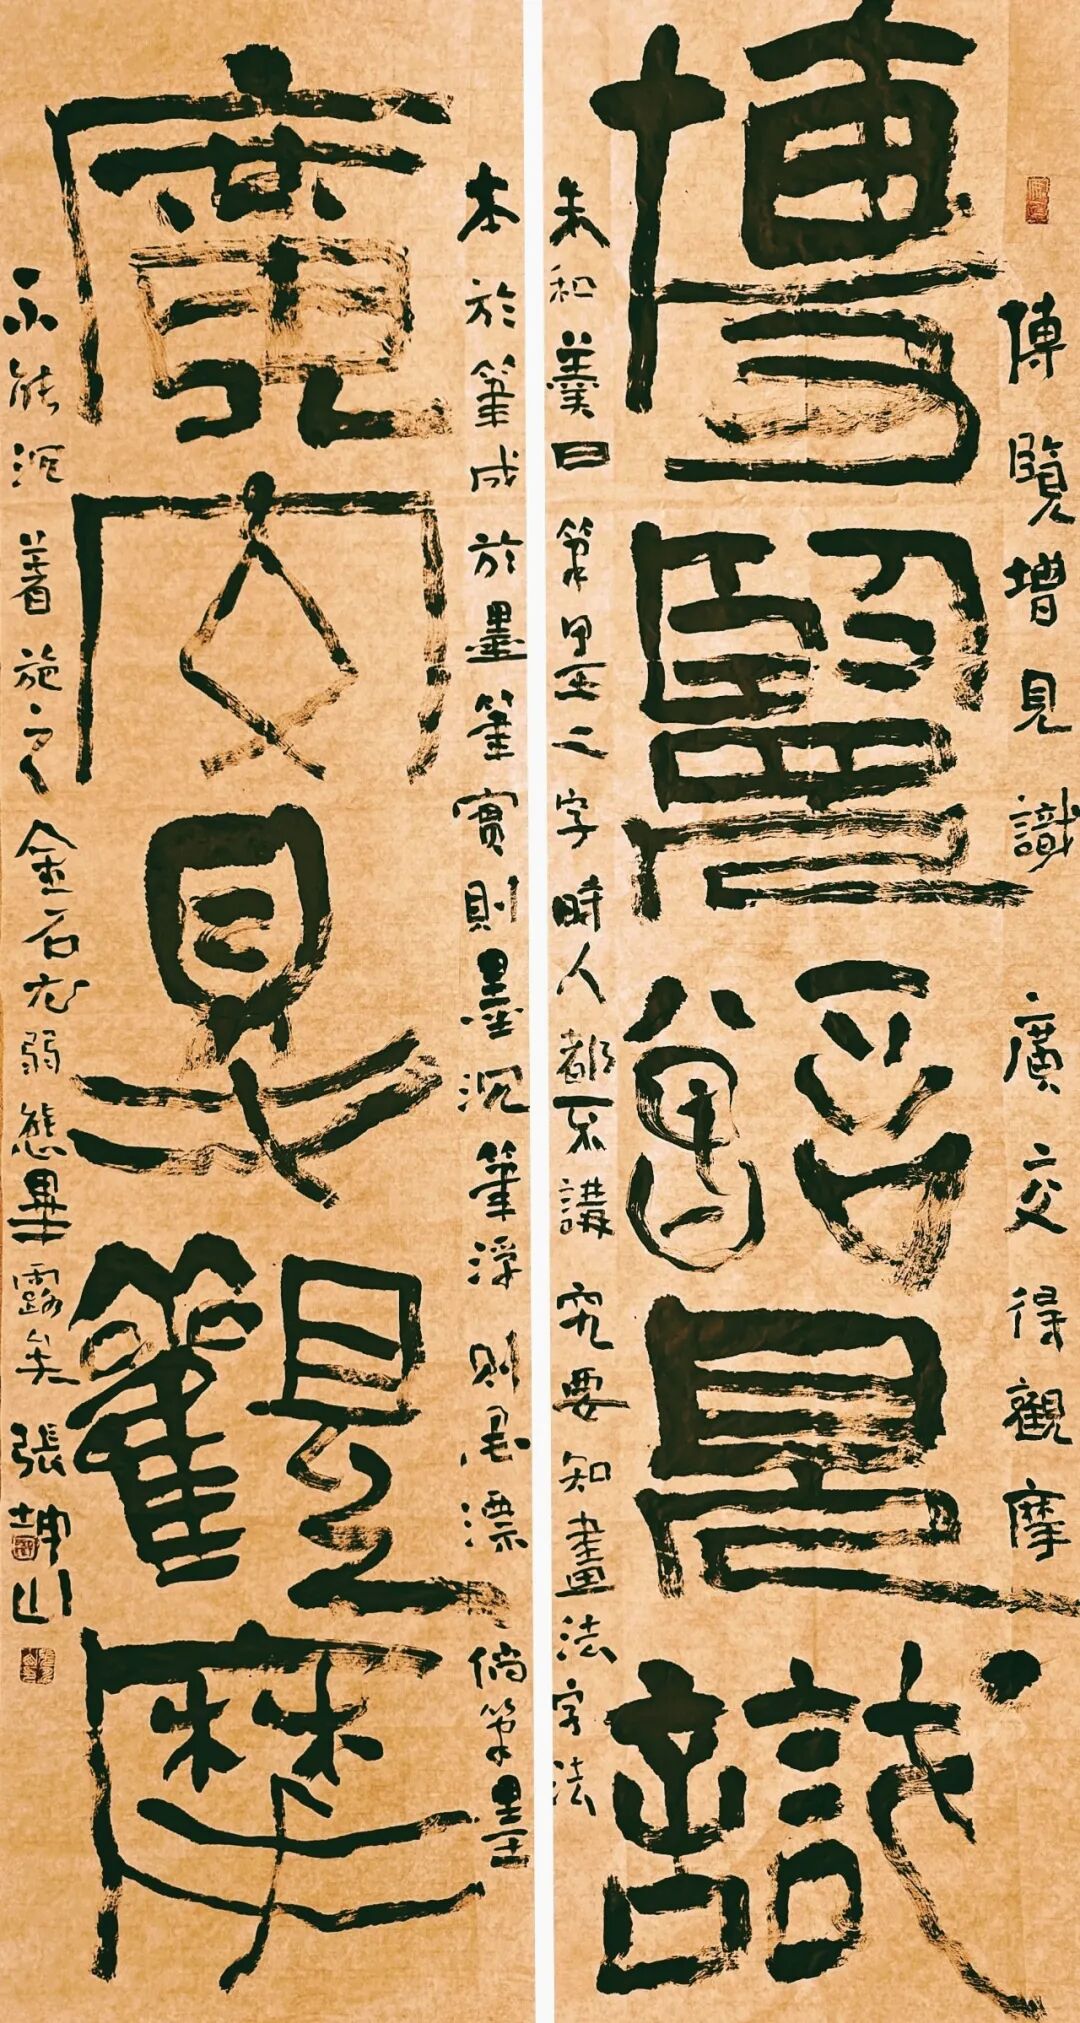 博覽增見識 廣交得觀摩
博覽增見識
朱和羹曰筆墨二字時人都不講究要知畫法字法
本於筆成於墨筆實則墨沉筆浮則墨漂倘筆墨
廣交得觀摩
不能沉著施之金石尪弱態畢露矣 張坤山